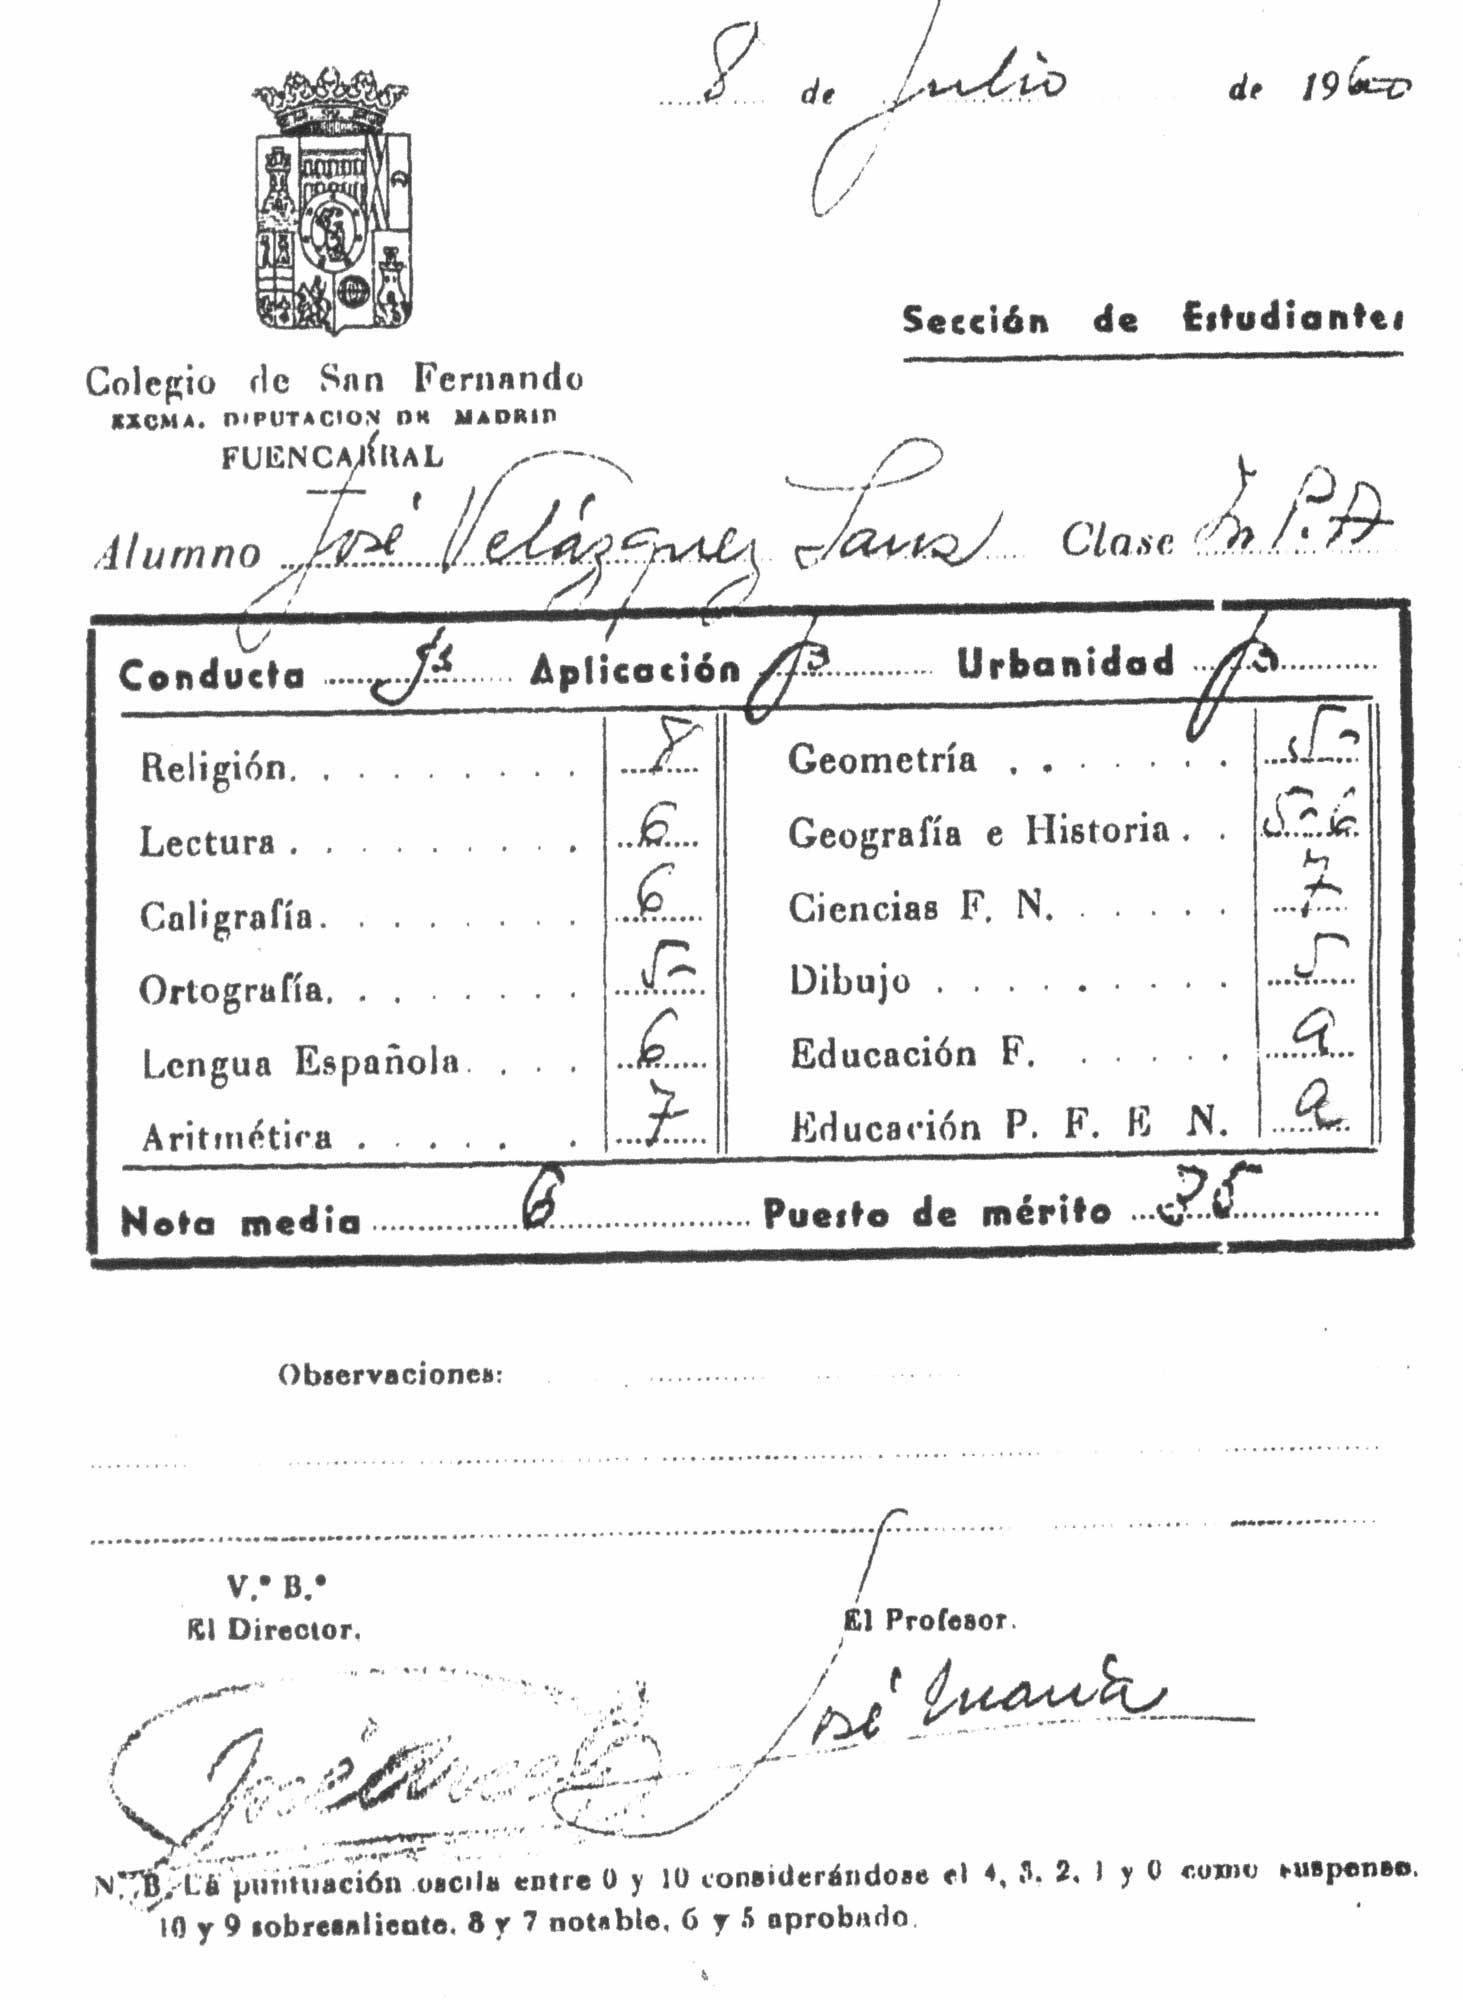 8 de Julio de 1960
Sección de Estudiantes
Colegio de San Fernando
EXCMA. DIPUTACION DE MADRID
FUENCARRAL
Alumno José Velázquez Sanz Clase In P. A
Conducta Aplicación Urbanidad
Religión. 8 Geometría 5
Lectura 6 Geografía e Historia 5-6
Caligrafía. 6 Ciencias F. N. 7
Ortografía. 5 Dibujo 5
Lengua Española. 6 Educación F. a
Aritmética 7 Educación P. F. E N. a
Nota media 6 Puesto de mérito 35
Observaciones:
V.º B.º
El Director. El Profesor.
José María
N. B. La puntuación oscila entre 0 y 10 considerándose el 4, 3, 2, 1 y 0 como suspenso.
10 y 9 sobresaliente, 8 y 7 notable, 6 y 5 aprobado.